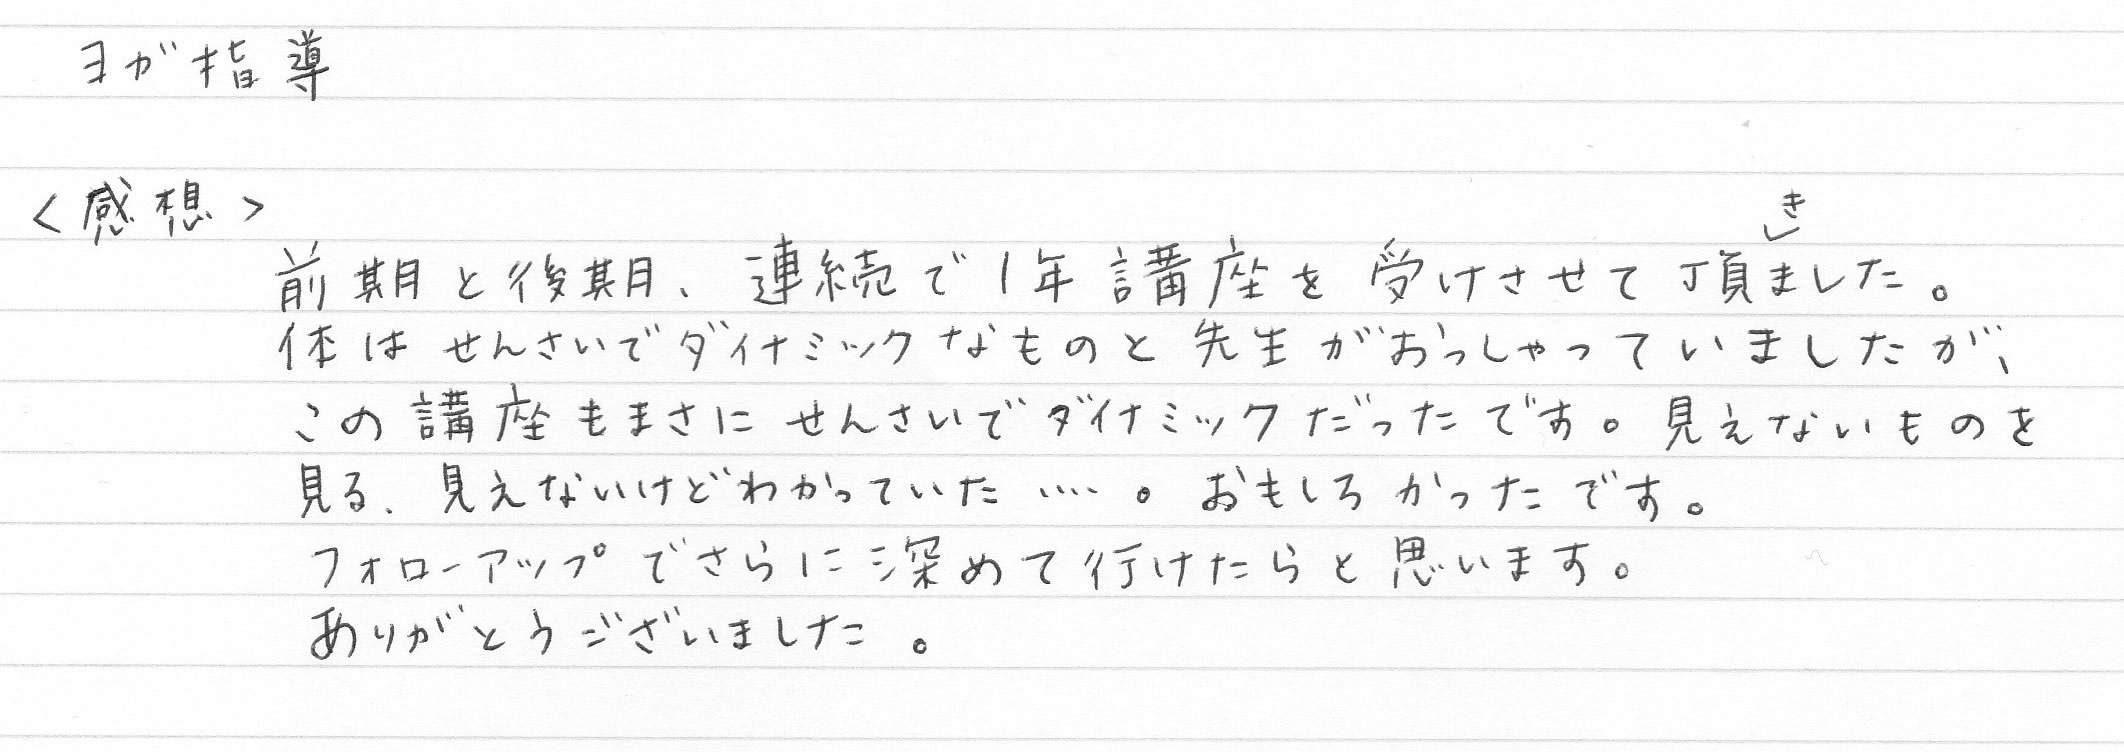 ヨガ指導
<感想>
前期と後期、連続で1年講座を受けさせて頂きました。
体はせんさいでダイナミックなものと先生がおっしゃっていましたが、
この講座もまさにせんさいでダイナミックだったです。見えないものを
見る、見えないけどわかっていた‥‥。おもしろかったです。
フォローアップでさらに深めて行けたらと思います。
ありがとうございました。